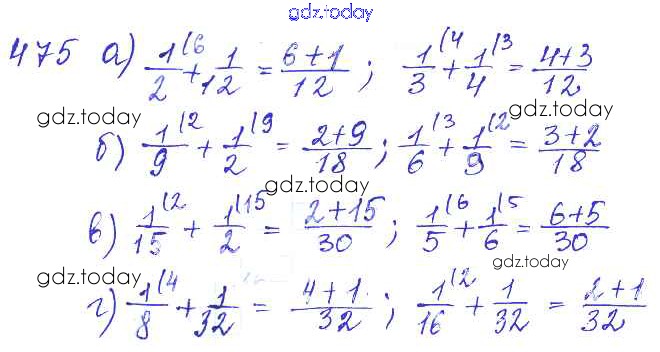 gdz.today
475 а) 1/2 (6 + 1/12 = 6+1/12 ; 1/3 (4 + 1/4 (3 = 4+3/12
gdz.today gdz.today
б) 1/9 (2 + 1/2 (9 = 2+9/18 ; 1/6 (3 + 1/9 (2 = 3+2/18
gdz.today
в) 1/15 (2 + 1/2 (15 = 2+15/30 ; 1/5 (6 + 1/6 (5 = 6+5/30
gdz.today gdz.today
г) 1/8 (4 + 1/32 = 4+1/32 ; 1/16 (2 + 1/32 = 2+1/32